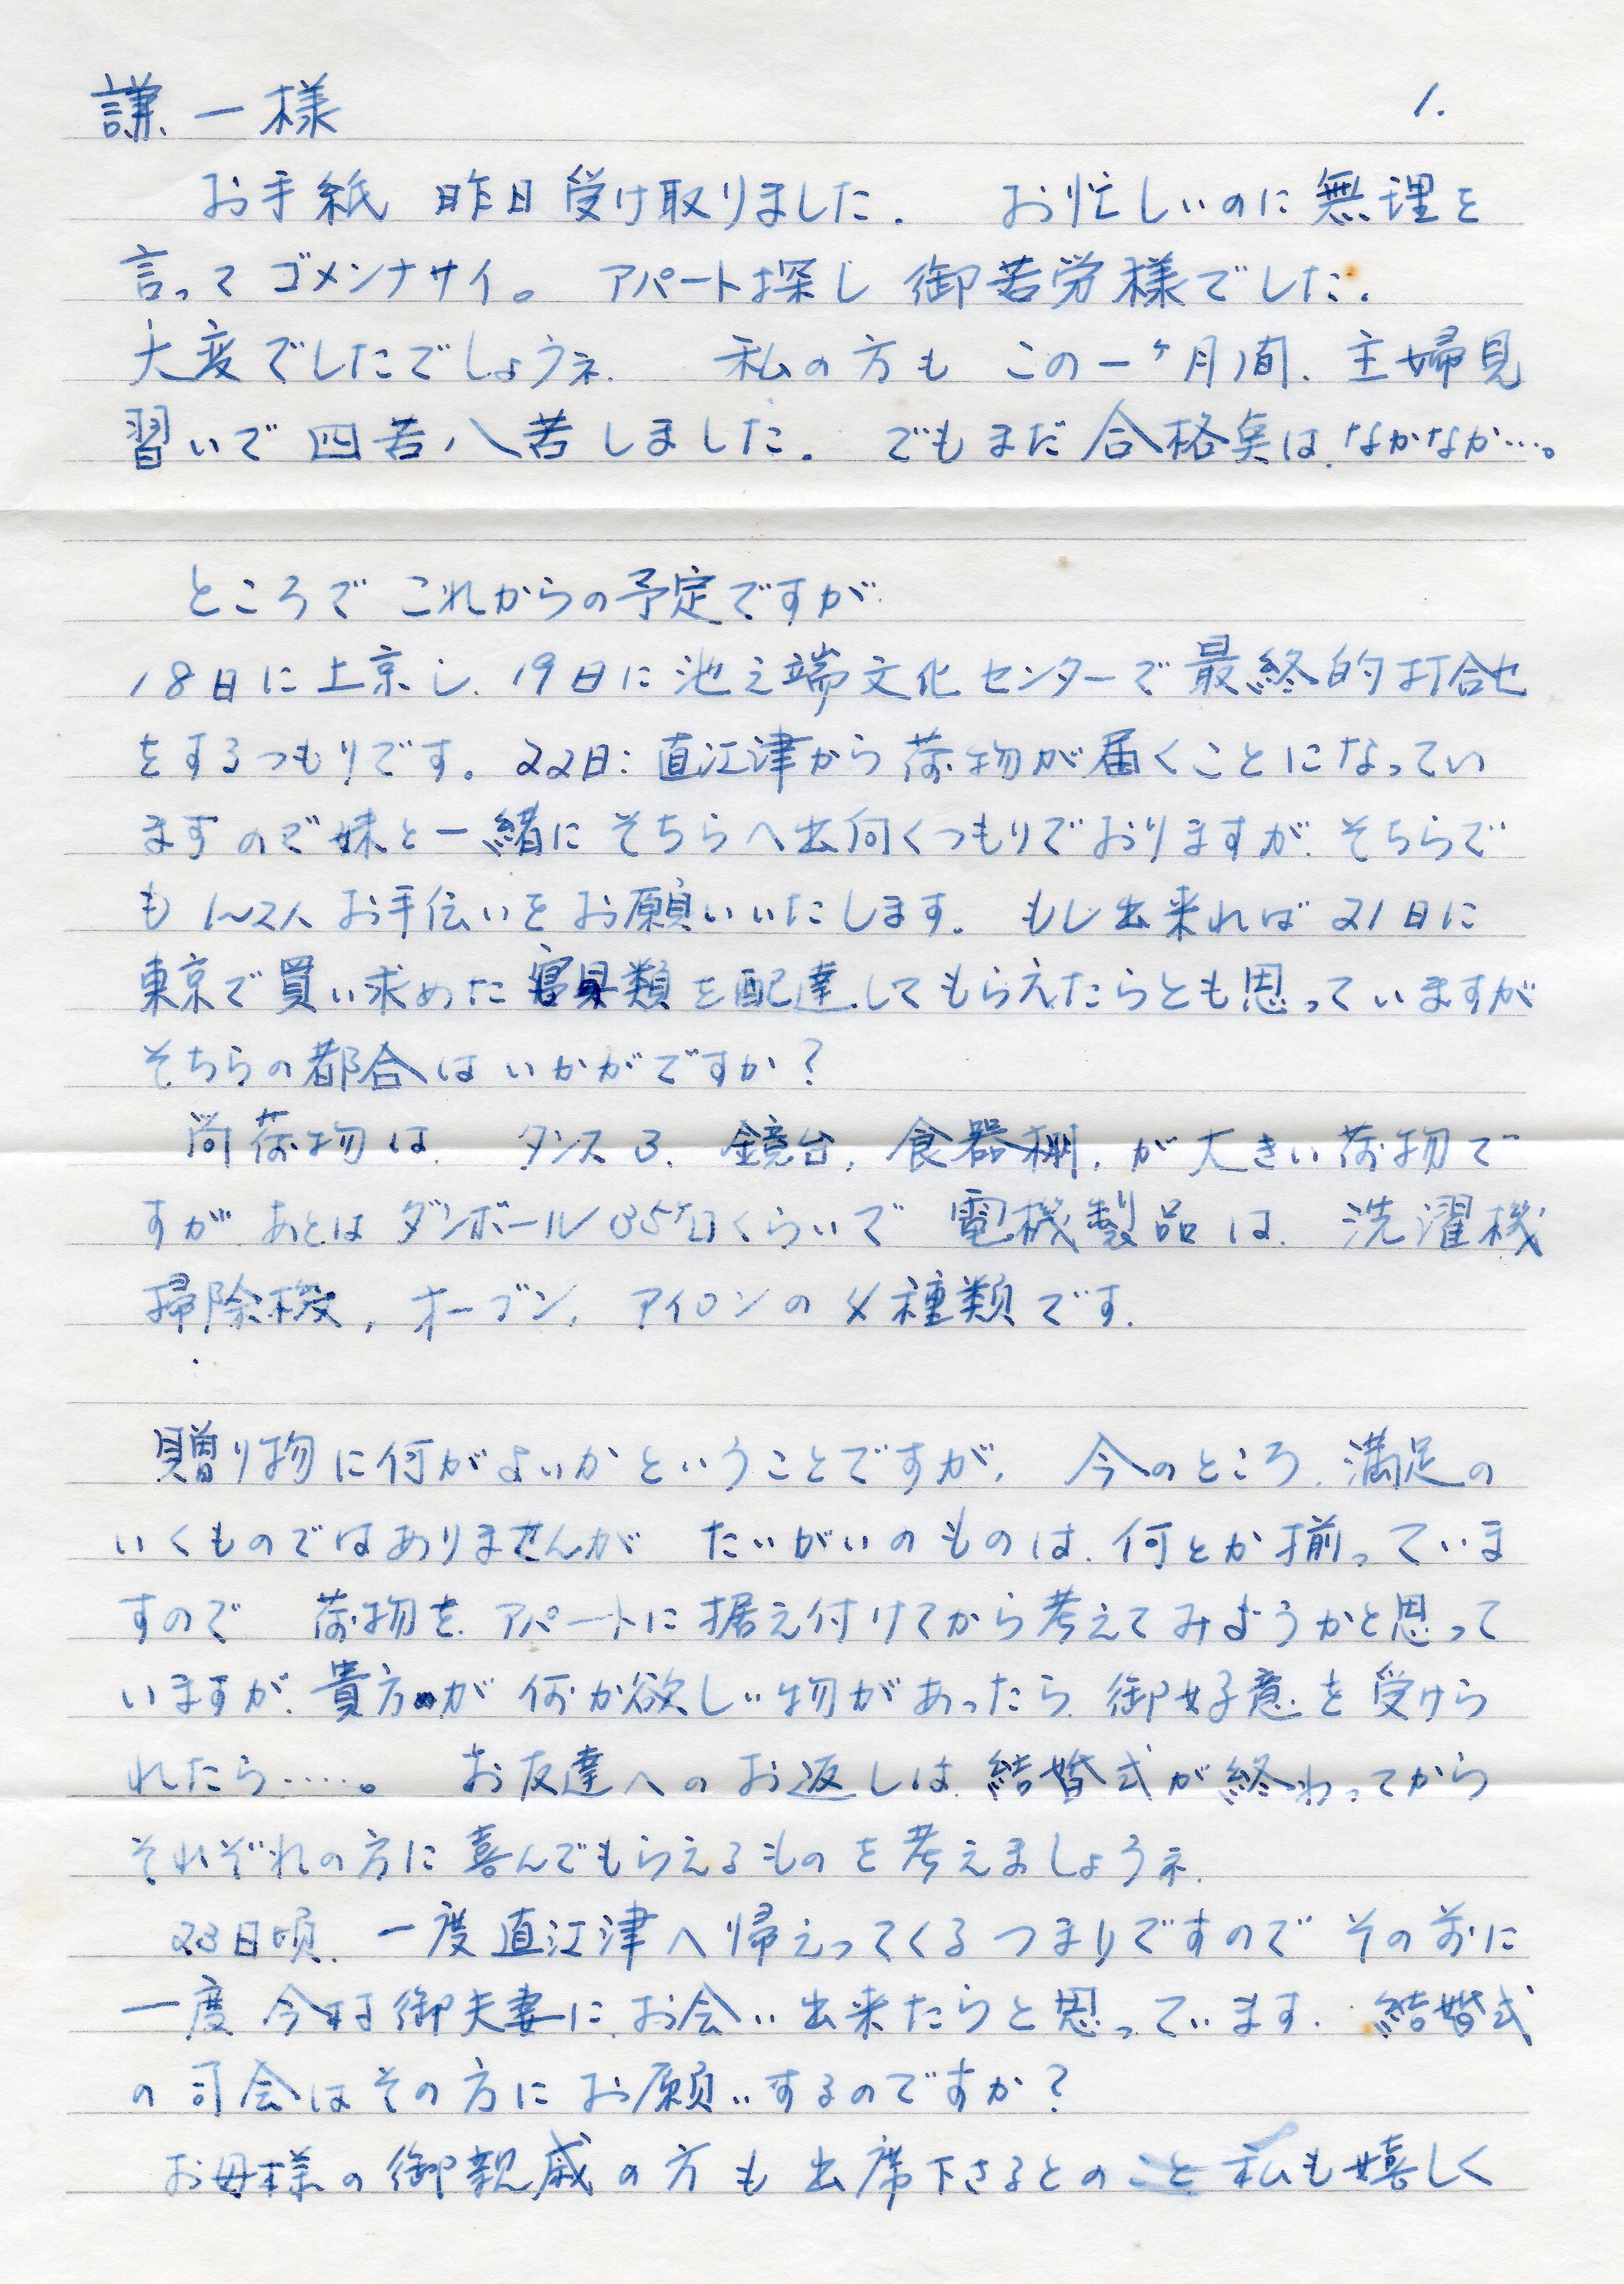 謙一様 1.
お手紙 昨日受け取りました. お忙しいのに無理を
言ってゴメンナサイ。 アパート探し 御苦労様でした.
大変でしたでしょうネ. 私の方も この一ヶ月間、主婦見
習いで四苦八苦しました. でもまだ合格点は、なかなか…。
ところで これからの予定ですが、
18日に上京し、19日に池之端文化センターで最終的打合せ
をするつもりです。22日:直江津から荷物が届くことになってい
ますので妹と一緒にそちらへ出向くつもりでおりますが、そちらで
も1〜2人お手伝いをお願いいたします。もし出来れば21日に
東京で買い求めた寝具類を配達してもらえたらとも思っていますが
そちらの都合はいかがですか?
尚荷物は、タンス3、鏡台、食器棚、が大きい荷物で
すが、あとはダンボール35ケ口くらいで 電機製品は、洗濯機
掃除機、オーブン、アイロンの4種類です.
贈り物に何がよいかということですが、 今のところ、満足の
いくものではありませんが たいがいのものは、何とか揃っていま
すので 荷物を、アパートに据え付けてから考えてみようかと思って
いますが、貴方が何か欲しい物があったら、御好意を受けら
れたら……。 お友達へのお返しは、結婚式が終わってから
それぞれの方に喜んでもらえるものを考えましょうネ.
23日頃、一度直江津へ帰えってくるつまりですのでその前に
一度 今村御夫妻に、お会い出来たらと思っています. 結婚式
の司会はその方にお願いするのですか?
お母様の御親戚の方も出席下さるとのこと私も嬉しく